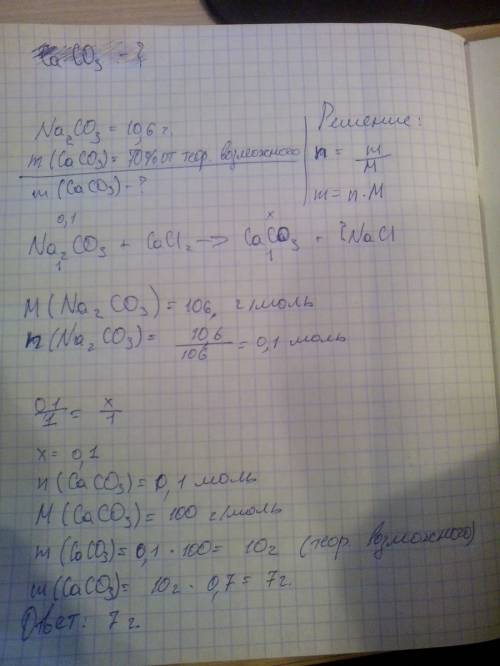 CaCO₃ - ?
Na₂CO₃ = 10,6 г.
m (CaCO₃) = 70% от теор. возможного
m (CaCO₃) - ?
Решение:
n = m/M
m = n · M
0,1 x
Na₂CO₃ + CaCl₂ → CaCO₃ + 2NaCl
1 1
M (Na₂CO₃) = 106, г/моль
n (Na₂CO₃) = 10,6/106 = 0,1 моль
0,1/1 = x/1
x = 0,1
n (CaCO₃) = 0,1 моль
M (CaCO₃) = 100 г/моль
m (CaCO₃) = 0,1 · 100 = 10г (теор. возможного)
m (CaCO₃) = 10г · 0,7 = 7г.
Ответ: 7г.